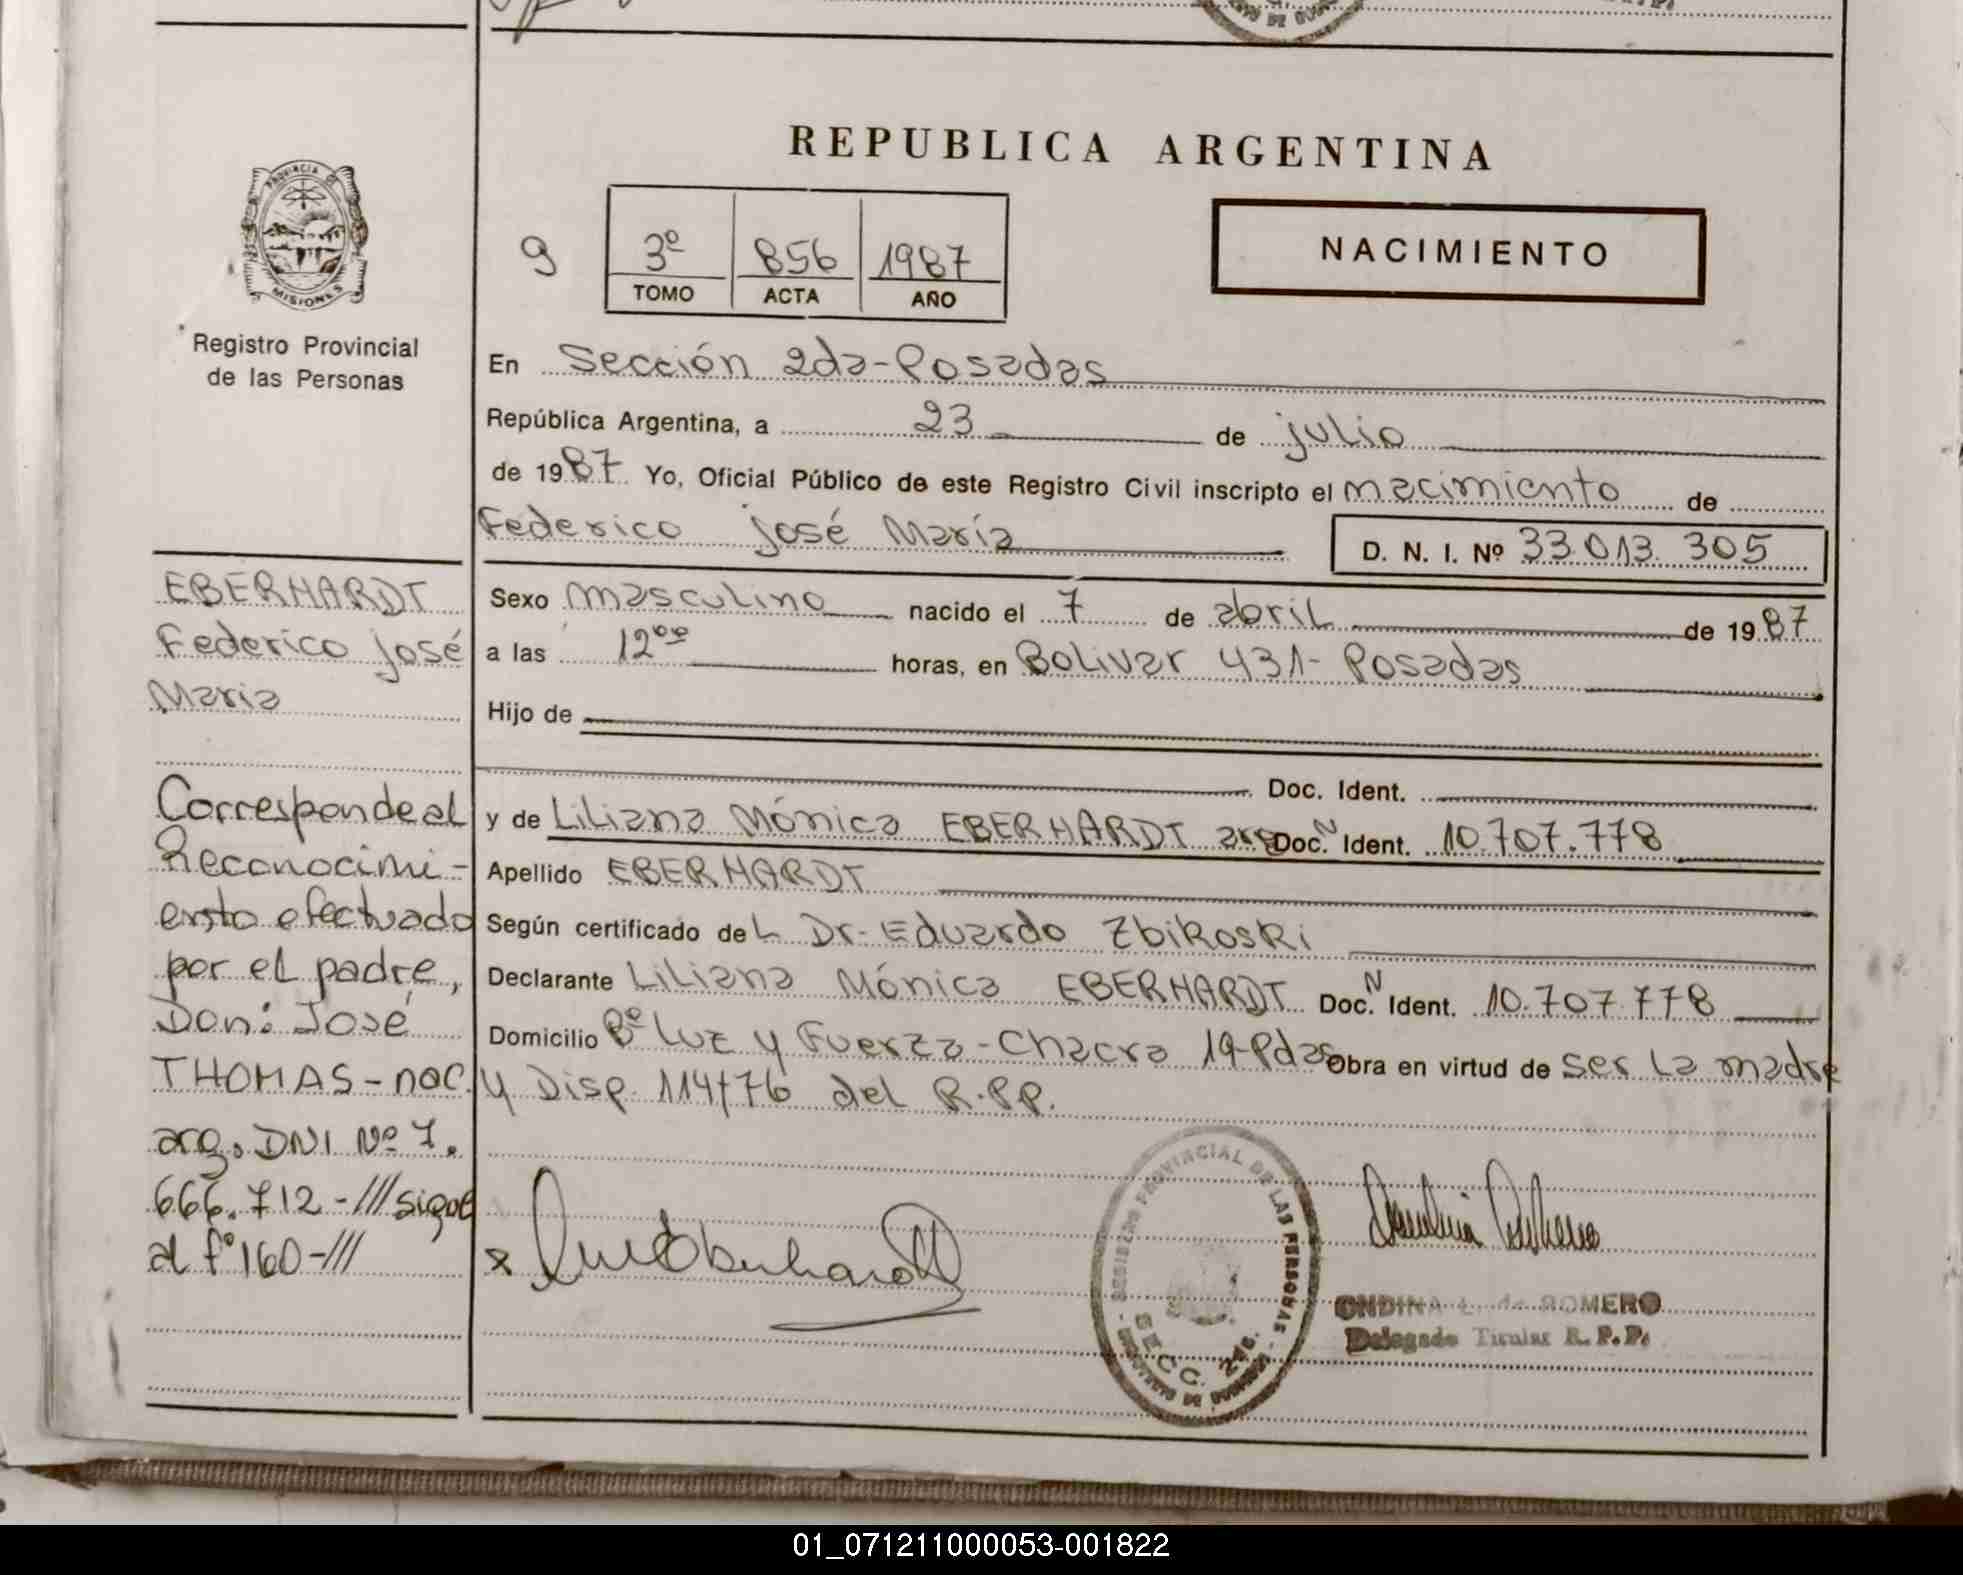 REPUBLICA ARGENTINA
PROVINCIA DE MISIONES
Registro Provincial
de las Personas
9
3º 856 1987
TOMO ACTA AÑO
NACIMIENTO
En Sección 2da-Posadas
República Argentina, a 23 de julio
de 1987 Yo, Oficial Público de este Registro Civil inscripto el nacimiento de
Federico José María D. N. I. Nº 33.013.305
Sexo masculino nacido el 7 de abril de 1987
a las 12ºº horas, en Bolivar 431- Posadas
Hijo de
Doc. Ident.
y de Liliana Mónica EBERHARDT arg Doc. N Ident. 10.707.778
Apellido EBERHARDT
Según certificado del Dr. Eduardo Zbikoski
Declarante Liliana Mónica EBERHARDT Doc. N Ident. 10.707.778
Domicilio Bº Luz y Fuerza-Chacra 19-Pdas Obra en virtud de ser la madre
y Disp. 114/76 del R.P.P.
EBERHARDT
Federico José
Maria
Corresponde al
Reconocimi-
ento efectuado
por el padre,
Don: José
THOMAS-nac.
arg. DNI Nº 7.
666.712-///sigue
al fº 160-///
x
REGISTRO PROVINCIAL DE LAS PERSONAS
SECC. 2da.
ONDINA L. de ROMERO
Delegado Titular R.P.P.
01_071211000053-001822